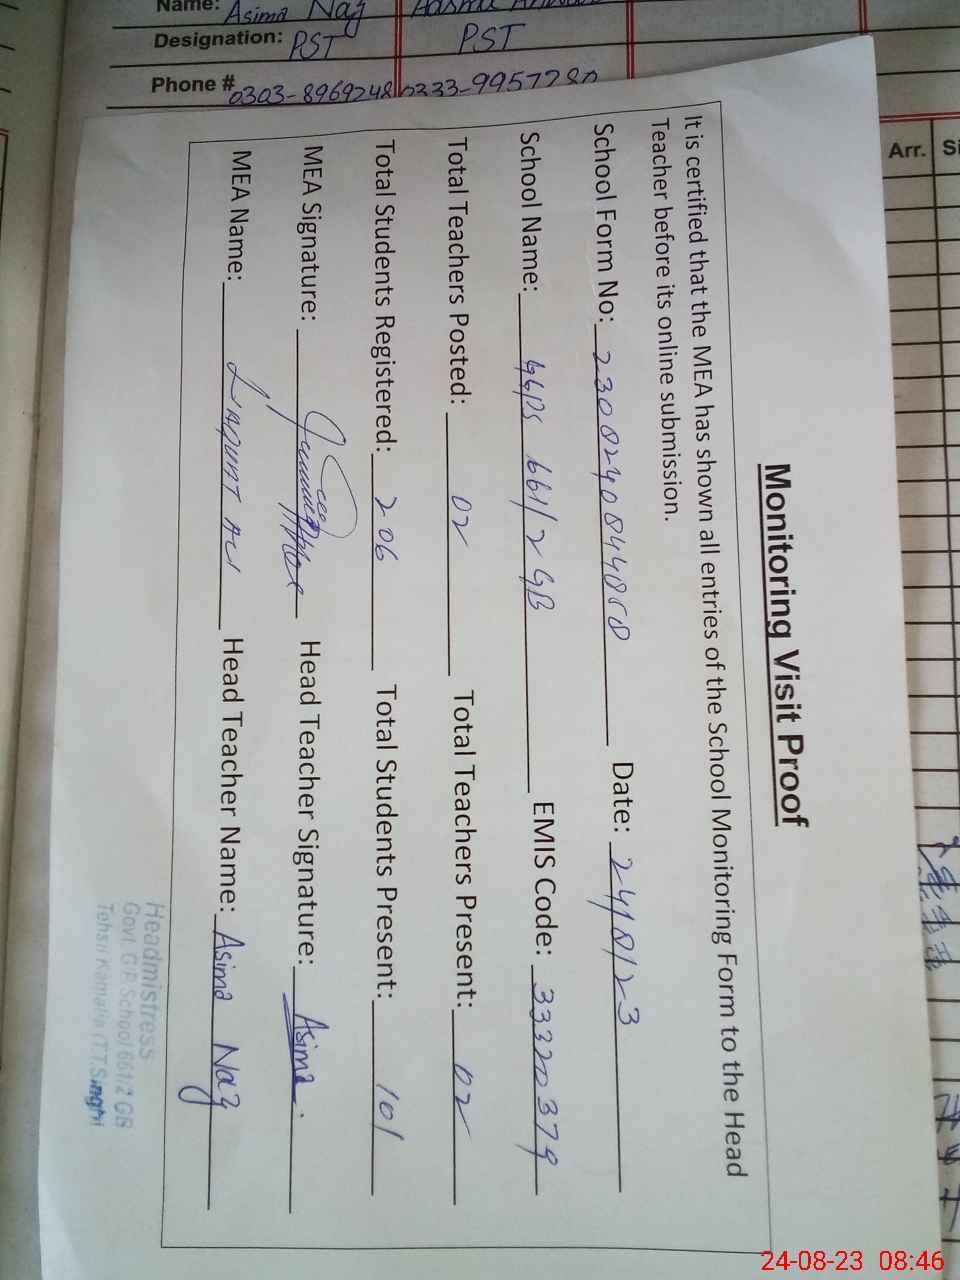 Name: Asima Naz
Designation: PST PST
Phone # 0303-8969248 0333-9957280
Arr.
Monitoring Visit Proof
It is certified that the MEA has shown all entries of the School Monitoring Form to the Head
Teacher before its online submission.
School Form No: Date: 24/8/23
School Name: GGPS 661/2 GB EMIS Code: 33320379
Total Teachers Posted: 02 Total Teachers Present: 02
Total Students Registered: 206 Total Students Present: 101
MEA Signature: Head Teacher Signature: Asima
MEA Name: Head Teacher Name: Asima Naz
Headmistress
Govt. G.P. School 661/2 GB
Tehsil Kamalia (T.T.Singh)
24-08-23 08:46